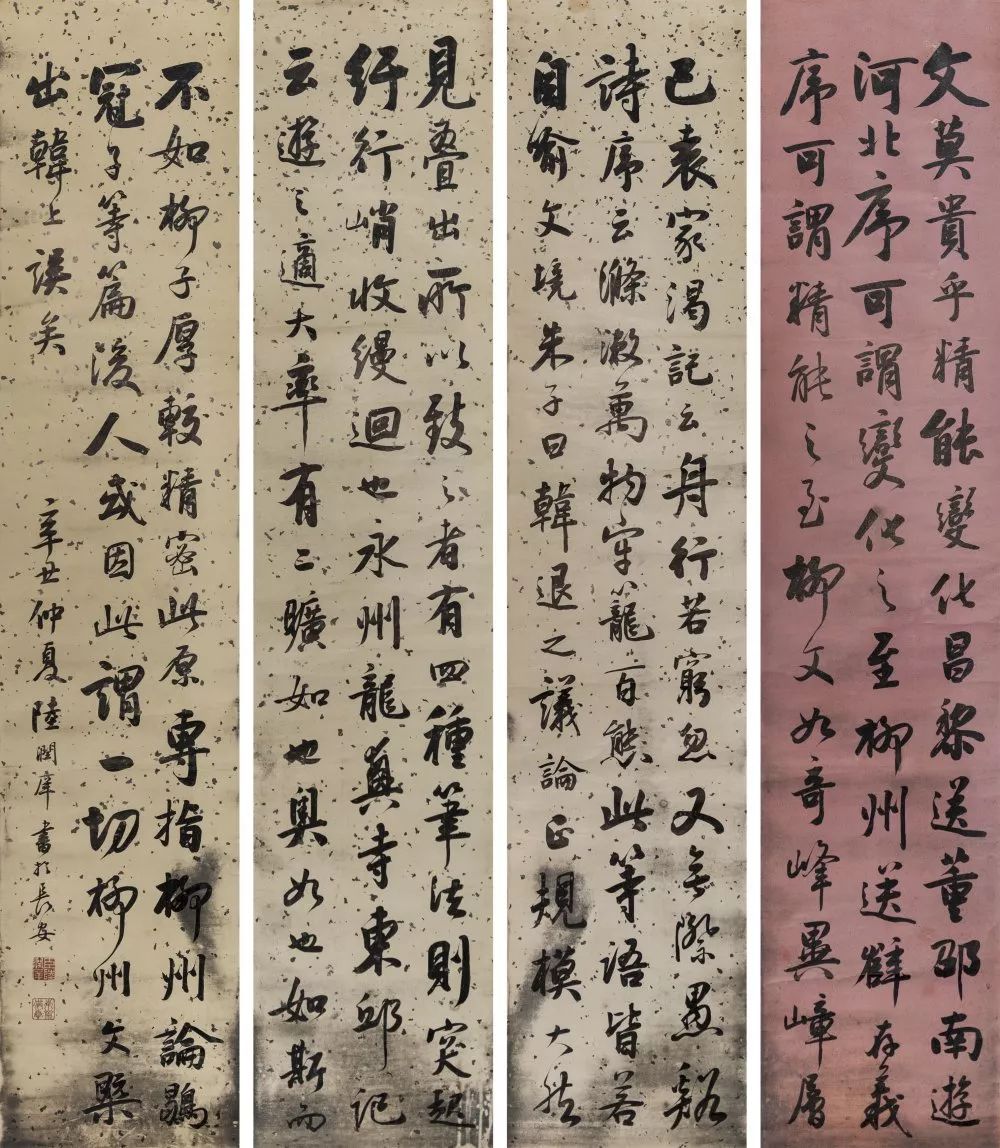 文莫貴乎精能變化昌黎送董邵南遊
河北序可謂變化之至柳州送薛存義
序可謂精能之至柳文如奇峰異嶂層
見疊出所以致之者有四種筆法則突起
紆行峭收縵迴也永州龍興寺東邱記
云遊之適大率有二曠如也奧如也如斯而
已袁家渴記云舟行若窮忽又無際愚谿
詩序云滌漱萬物牢籠百態此等語皆若
自喻文境朱子曰韓退之議論正規模大然
不如柳子厚較精密此原專指柳州論鶡
冠子等篇後人或因此謂一切柳州文槩
出韓上誤矣 辛丑仲夏陸潤庠書於長安